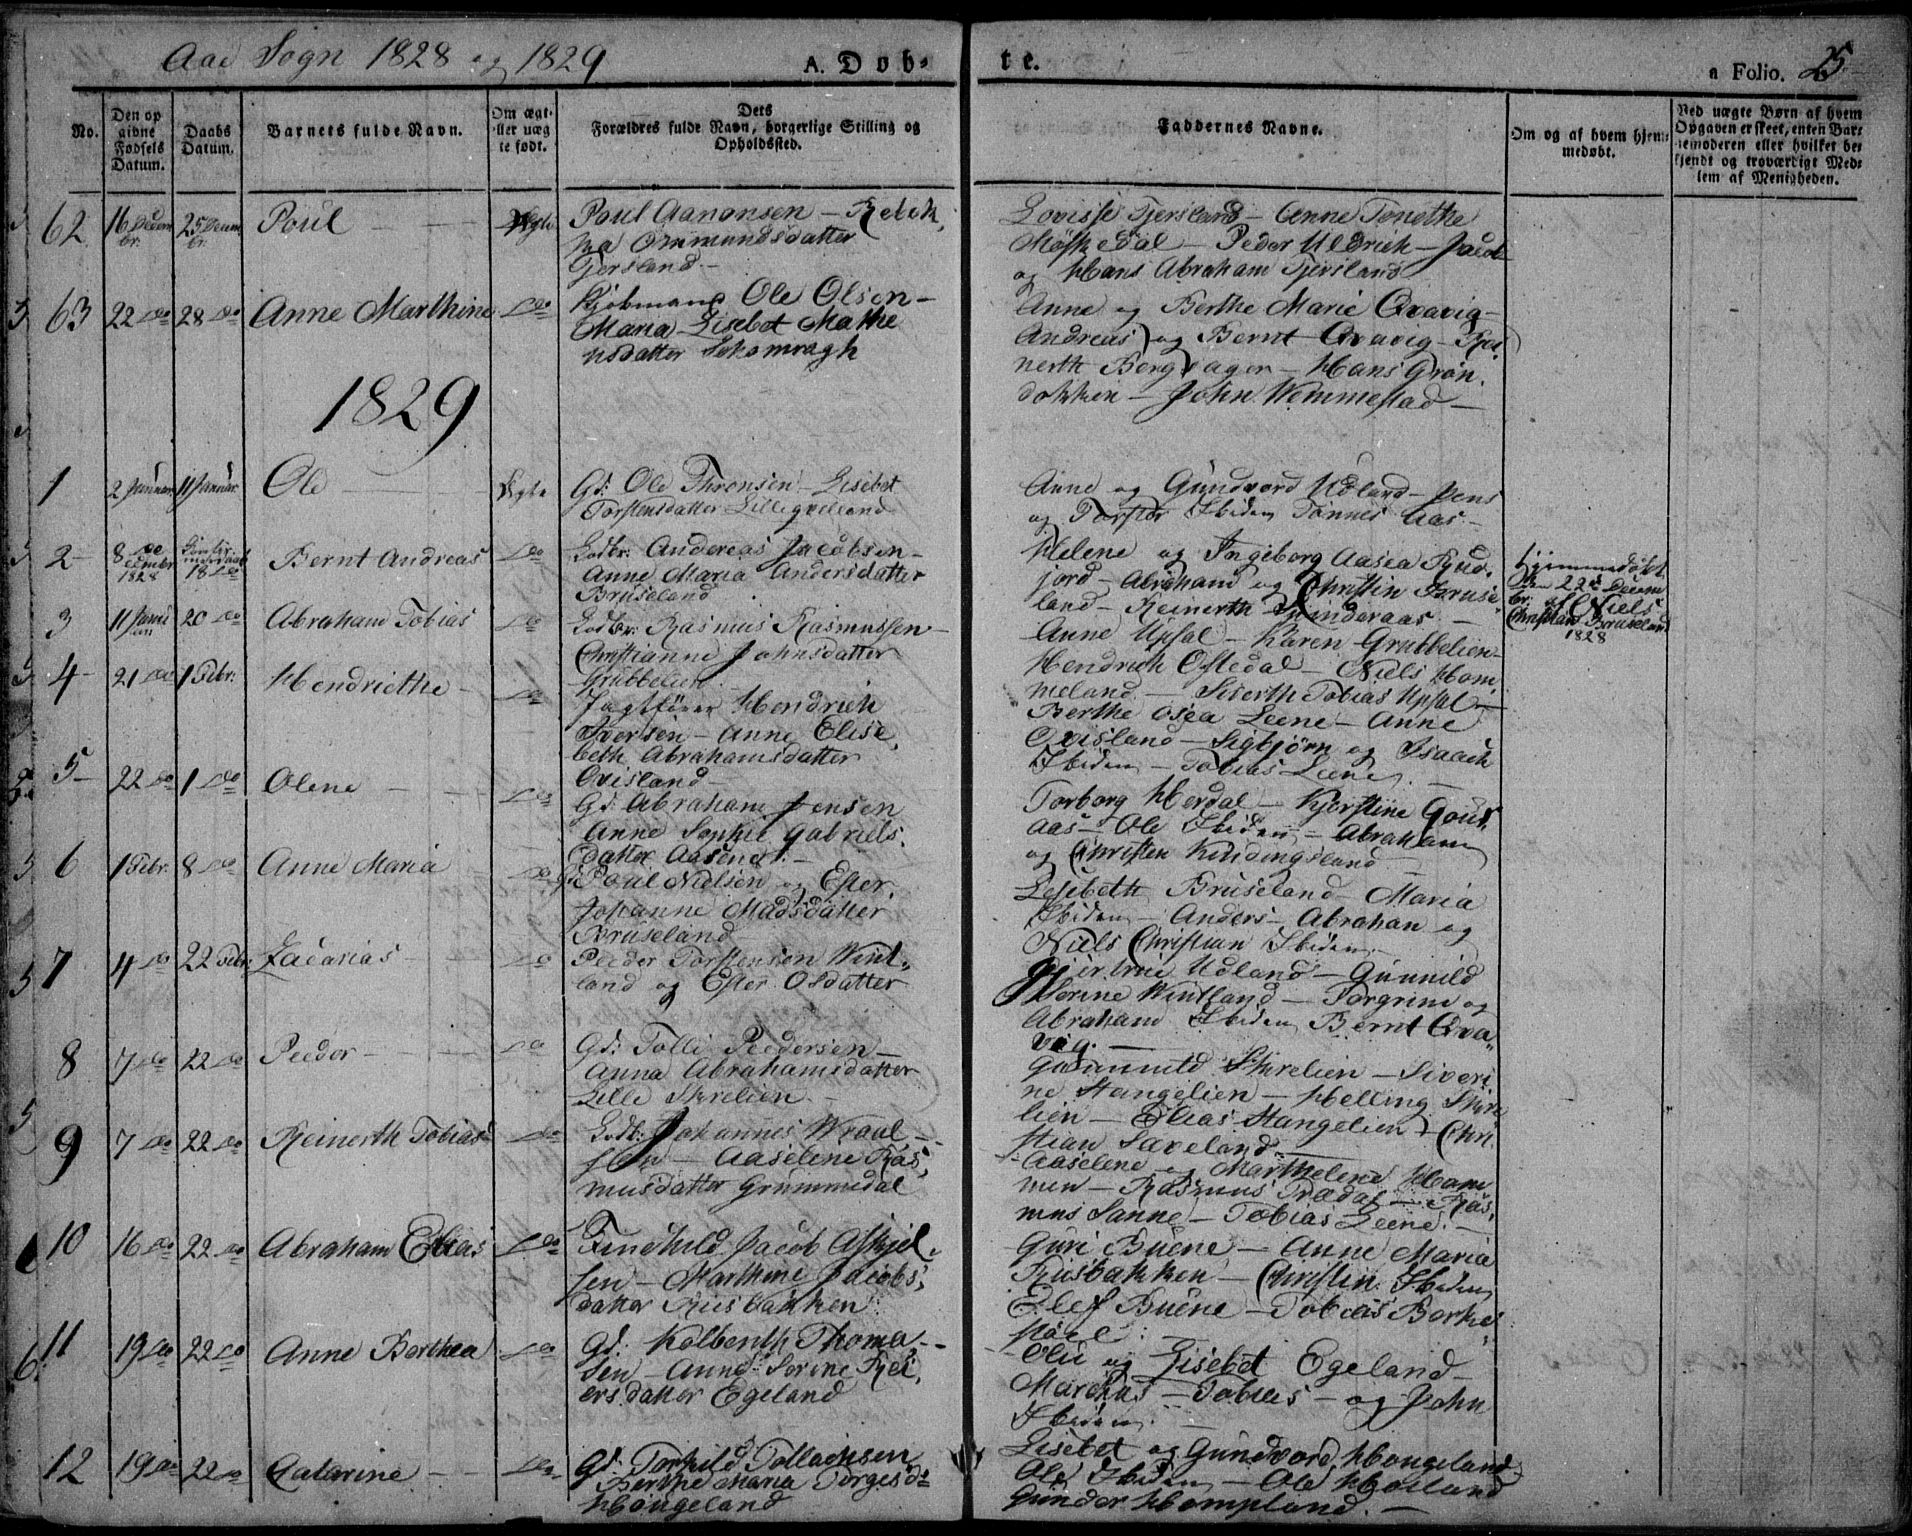 Aae Sogn 1828 og 1829
A. Døb-
te.
a Folio. 25
No.
Den op
givne
Fødsels
Datum.
Daabs
Datum.
Barnets fulde Navn.
Om ægte
eller uæg
te født.
Dets
Forældres fulde Navn, borgerlige Stilling og
Opholdssted.
Faddernes Navne.
Om og af hvem hjem-
medøbt.
Ved uægte Børn af hvem
Opgaven er skeet, enten Bar-
nemoderen eller hvilket be-
kjendt og troværdigt Med-
lem af Menigheden.
62 16 Decem 25 Decem Poul Ægte Poul Aanonsen - Rebek
br. br.
ka Ommundsdatter
Fjersland -
Lovisse Fjersland - Anne Tonethe
Møskedal - Peder Uldrich - Jacob
og Hans Abraham Fjersland
63 22 do 28 do Anne Marthine do Kjøbmand Ole Olsen -
Maria Lisebet Mathe
nsdatter
Anne og Berthe Marie Qvavig -
Andreas og Bernt Qvavig - Rei
nerth Bergsager - Hans Grøn
dokken - John Wemmestad -
1829
1 2 Januar 11 Januar Ole Ægte Gd: Ole Thronsen - Lisebet
Torstensdatter Lille Qvelland
Anne og Gundvord Udland - Jens
og Torster Ibiden Tønnes Aas -
2 8 do 18 do Bernt Andreas do Lodbr: Andereas Jacobsen -
1828
Anne Maria Andersdatter
Bruseland
Helene og Ingeborg Aasea Rud
jord - Abraham og Christin Bruse
land - Reinerth Sunderaas -
Hjemmedøbt
den 22de Decem
br: af Niels
Christian Bruseland
1828
3 11 Janu 20 do Abraham Tobias do Lodbr: Rasmus Rasmussen -
Christianne Johnsdatter
Grubbelien
Anne Upsal - Karen Grubbelien -
Hendrich Ofstedal - Niels Hom
meland - Siverth Tobias Upsal -
4 21 do 1 Febr: Hendriethe do Jagtfører Hendrich
Iversen - Anne Elise
beth Abrahamsdatter
Qvisland -
Berthe Osea Leene - Anne
Qvisland - Sigbjørn og Isaach
Ibiden - Tobias Leene
5 22 do 1 do Olene do Gd: Abraham Jensen
Anne Sophie Gabriels
datter Aasen
Torborg Herdal - Kjerstine Gouls
aas - Ole Ibiden - Abraham
og Christen Kindingsland -
6 1 Febr: 8 do Anne Maria do Gd: Poul Nielsen og Ester
Johanne Madsdatter
Bruseland -
Lisebeth Bruseland - Maria
Ibiden - Anders - Abrahan og
Niels Christian Ibiden -
7 4 do 22 Febr: Zacarias do Peeder Torstensen Wint
land og Ester Olsdatter
Gjertrue Udland - Gunnild
Serine Wintland - Torgrim og
Abraham Ibiden Bernt Qva
vig. -
8 7 do 22 do Peeder do Gd: Tolli Peedersen -
Anna Abrahamsdatter
Lille Skrelien -
Gunnild Skrelien - Siveri
ne Stangelien - Helling Skre
lien - Elias Stangelien - Chri
stian Sæveland -
9 7 do 22 do Reinerth Tobias do Lodb: Johannes Wraal -
sen - Aaselene Ras
musdatter Grummedal
Aaselene og Marthelene Ham
men - Rasmus Trædal - Ras
mus Sanne - Tobias Leene. -
10 16 do 22 do Abraham Elias do Jacob Askjel
sen - Marthine Jacobs
datter Riisbakken
Guri Buene - Anne Maria
Riisbakken - Christin Ibiden
Elef Buene - Tobias Borke
støel
11 19 do 22 do Anne Berthea do Gd: Kolbenth Thoma -
sen - Anne Serine Rei
ersdatter Egeland
Olii og Lisebet Egeland -
Marthas - Tobias - og John
Ibiden.
12 19 do 22 do Catarine do Gd: Torkild Tollachsen
Berthe Maria Torgersd:
Hougeland
Lisebet og Gundvord Hougeland
Ole Ibiden - Ole Hølland
Gunder Hompland. -